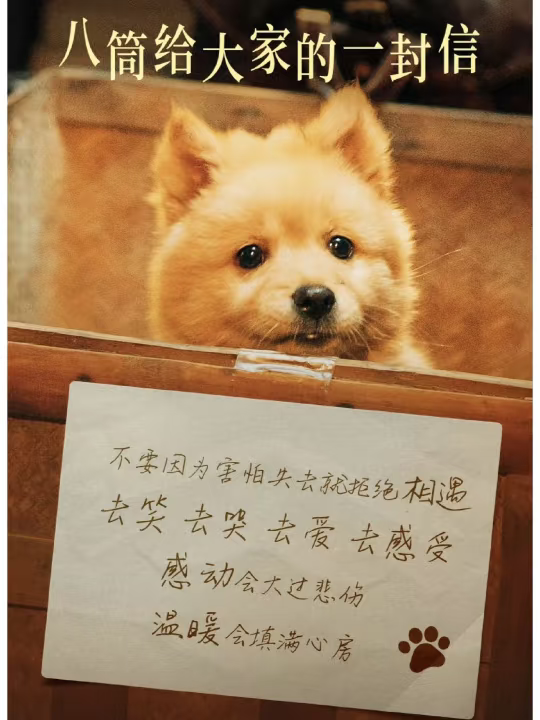 八筒给大家的一封信
不要因为害怕失去就拒绝相遇
去笑 去哭 去爱 去感受
感动会大过悲伤
温暖会填满心房